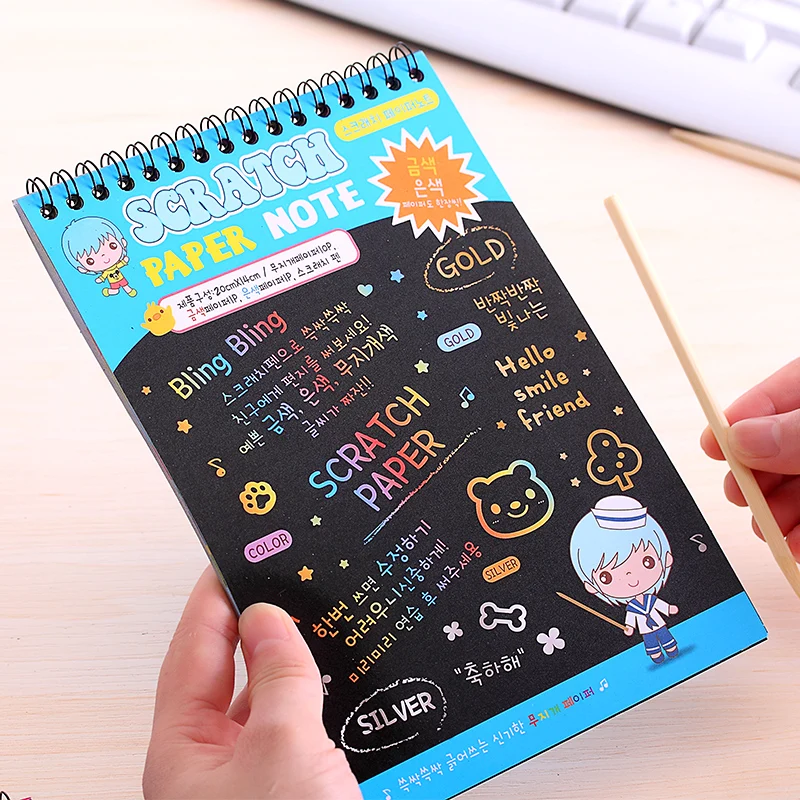 스크래치 페이퍼노트
SCRATCH
PAPER NOTE
금색
은색
페이퍼도 한장씩!
제품구성:20cmX14cm / 무지개페이퍼10P,
금색페이퍼1P, 은색페이퍼1P, 스크래치 펜
GOLD
Bling Bling
스크래치펜으로 쓱싹쓱싹
친구에게 편지를 써보세요!
예쁜 금색, 은색, 무지개색
글씨가 짜잔!!
GOLD
반짝반짝
빛나는
Hello
smile
friend
SCRATCH
PAPER
COLOR
한번 쓰면 수정하기
어려우니신중하게!
미리미리 연습 후 써주세용
SILVER
"축하해"
SILVER
쓱싹쓱싹 긁어쓰는 신기한 무지개 페이퍼